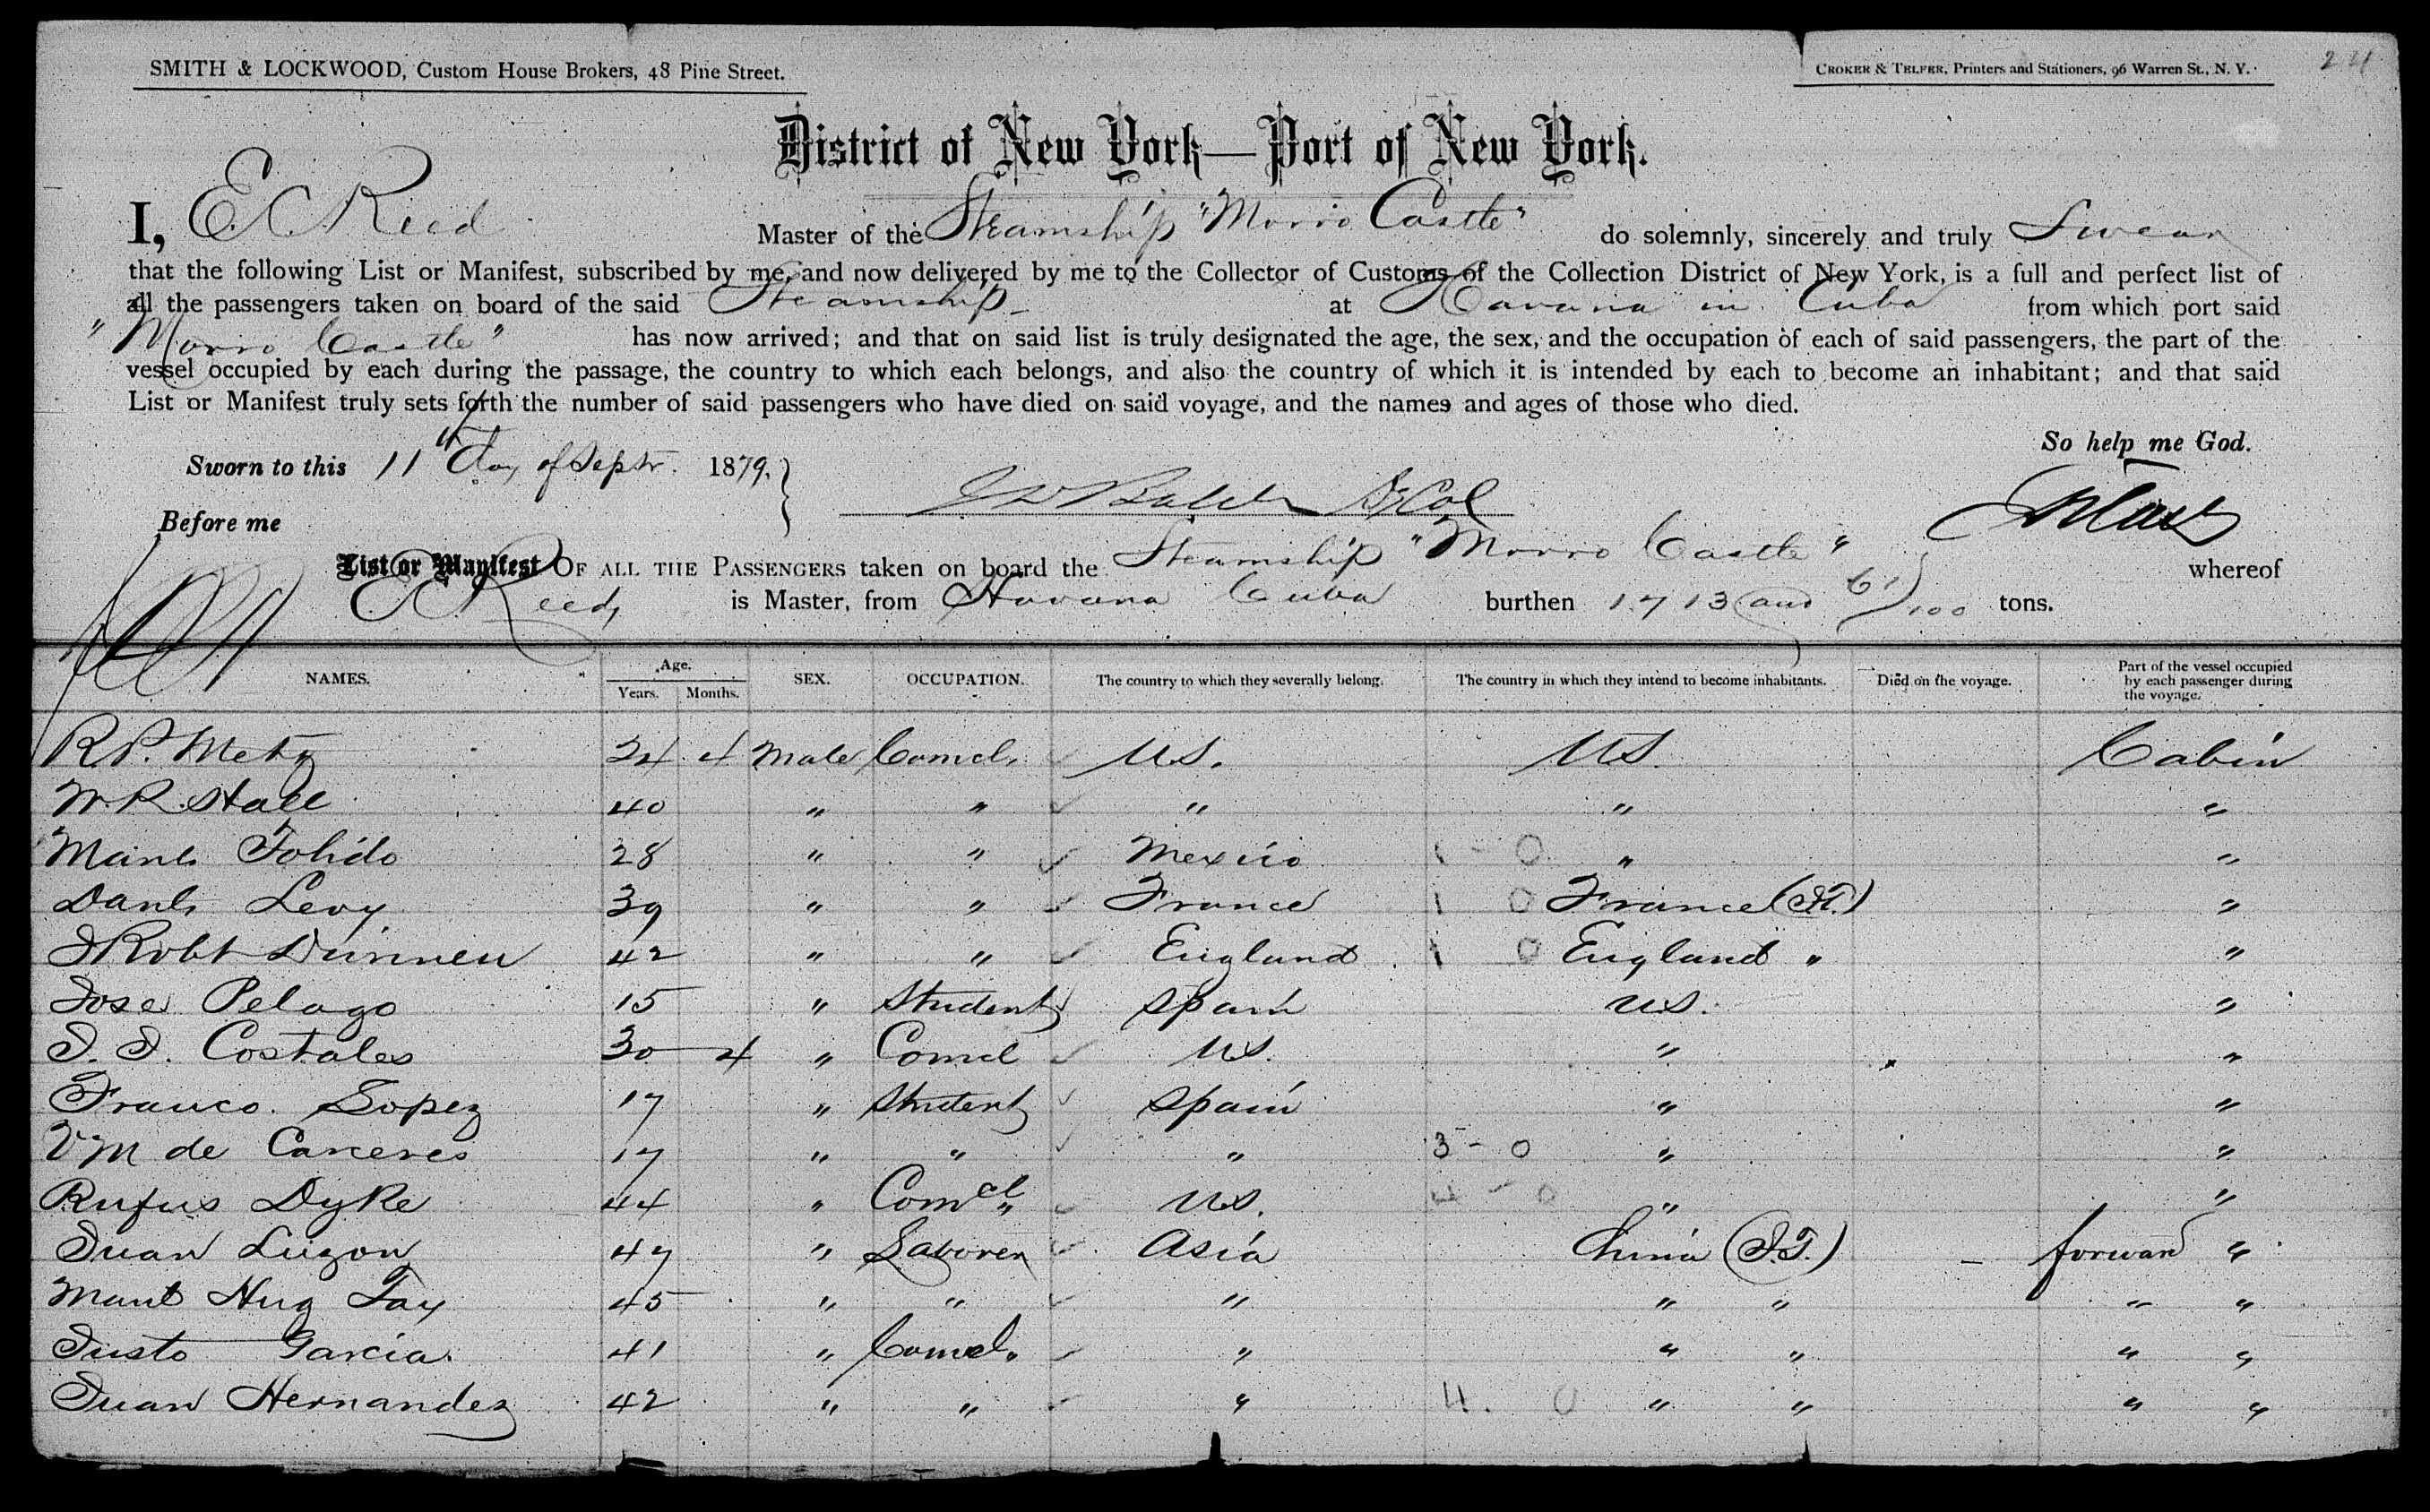 SMITH & LOCKWOOD, Custom House Brokers, 48 Pine Street.
CROKER & TELFER, Printers and Stationers, 96 Warren St., N. Y.
24
District of New York—Port of New York.
I, E. Reed Master of the Steamship "Morro Castle" do solemnly, sincerely and truly Swear
that the following List or Manifest, subscribed by me, and now delivered by me to the Collector of Customs of the Collection District of New York, is a full and perfect list of
all the passengers taken on board of the said Steamship at Havana in Cuba from which port said
"Morro Castle" has now arrived; and that on said list is truly designated the age, the sex, and the occupation of each of said passengers, the part of the
vessel occupied by each during the passage, the country to which each belongs, and also the country of which it is intended by each to become an inhabitant; and that said
List or Manifest truly sets forth the number of said passengers who have died on said voyage, and the names and ages of those who died.
So help me God.
Sworn to this 11th day of Septr. 1879.
Before me
List or Manifest OF ALL THE PASSENGERS taken on board the Steamship "Morro Castle" whereof
Reed, is Master, from Havana Cuba burthen 1713 and 61/100 tons.
NAMES. Age. Years. Months. SEX. OCCUPATION. The country to which they severally belong. The country in which they intend to become inhabitants. Died on the voyage. Part of the vessel occupied by each passenger during the voyage.
R.P. Metz 34 4 Male Comcl. U.S. U.S. Cabin
W.R. Hall 40 " " " " "
Manl. 28 " " Mexico 1 - 0 " "
Danl. Levy 39 " " France 1 0 France (I.T.) "
Robt 42 " " England 1 0 England " "
Jose Pelago 15 " Student Spain U.S. "
J. J. Costales 30 4 " Comcl U.S. " "
Franco. Lopez 17 " Student Spain " "
V M de Carceres 17 " " " 3 - 0 " "
Rufus Dyke 44 " Comcl " U.S. 4 - 0 " "
Juan Luzon 47 " Laborer Asia China (I.T.) forward "
Manl Hug Tay 45 " " " " " " "
Justo Garcia 41 " Comcl. " " " " "
Juan Hernandez 42 " " " 4. 0 " " " "